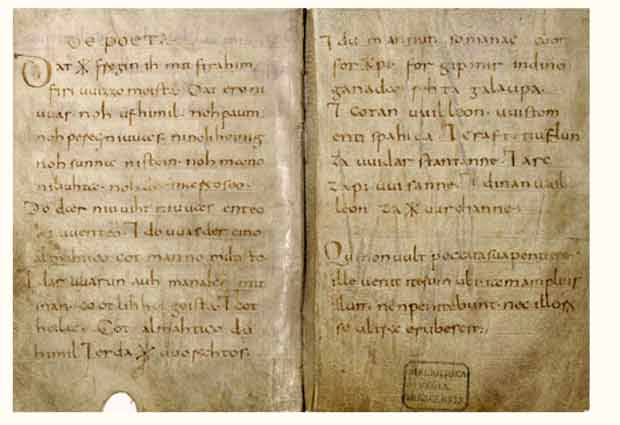 DE POETA
Dat ᚷ fregin ih mit firahim
firi uuizzo meista. Dat ero ni
uuas. noh ufhimil. noh paum
noh pereg niuuas. ninohheinig
noh sunna nistein. noh mano
niliuhta. noh der mareoseo.
Do dar niuuiht niuuas enteo
ni uuenteo. ⁊ do uuas der eino
almahtico cot manno milti sto
⁊ dar uuarun auh manake mit
man. cootlihhe geista. ⁊ cot
heilac. Cot almahtico du
himil ⁊ erda ᚷ uuorahtos.
⁊ du mannun somanac coot
for ᚷpi. for gipmir indino
ganada rehta galaupa.
⁊ cotan uuilleon. uuistom
enti spahida. ⁊ craft. tiuflun
za uuidar stantanne. ⁊ arc
zapi uuisanne. ⁊ dinan uuil
leon za ᚷ uurchanne.
Qui non vult peccata sua penitere
ille venit iterum ubi iam amplius
illum non penitebunt. nec illorum
se ultra erubescit.
BIBLIOTHECA
REGIA
MONACENSIS